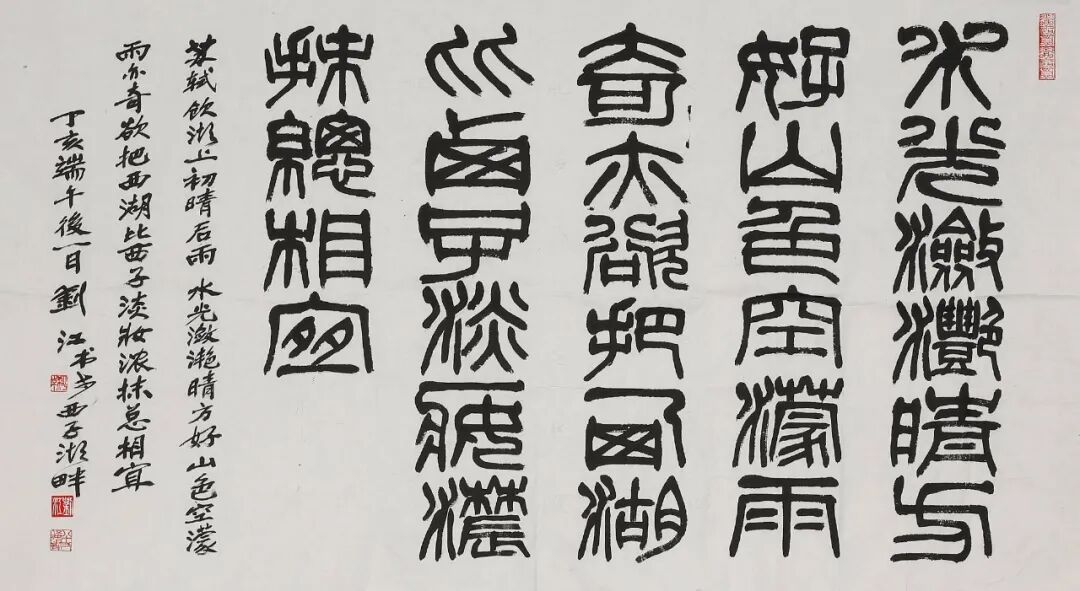 水光瀲灩晴方
好山色空濛雨
奇亦欲把西湖
比西子淡妝濃
抹總相宜
苏轼饮湖上初晴后雨 水光潋滟晴方好山色空濛
雨亦奇欲把西湖比西子淡妝浓抹总相宜
丁亥端午後一日劉江书于西子湖畔